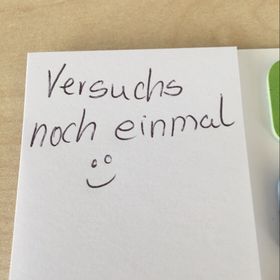 Versuchs
noch einmal